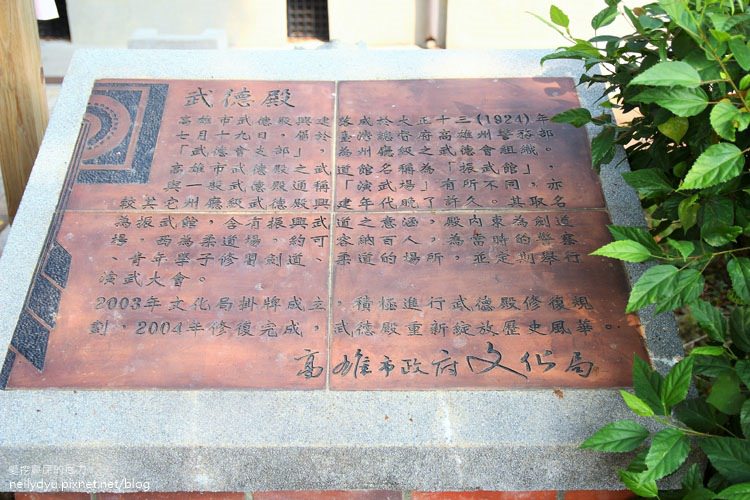 武德殿
高雄市武德殿興建落成於大正十三(1924)年
七月十九日，屬於臺灣總督府高雄州警務部
「武德會支部」，為州廳級之武德會組織。
高雄市武德殿之武道館名稱為「振武館」，
與一般武德殿通稱「演武場」有所不同，亦
較其它州廳級武德殿興建年代晚了許久。其取名
為振武館，含有振興武道之意涵，殿內東為劍道
場，西為柔道場，約可容納百人，為當時的警察
、青年學子修習劍道、柔道的場所，並定期舉行
演武大會。
2003年文化局掛牌成立，積極進行武德殿修復規
劃，2004年修復完成，武德殿重新綻放歷史風華。
高雄市政府文化局
nellydyu.pixnet.net/blog